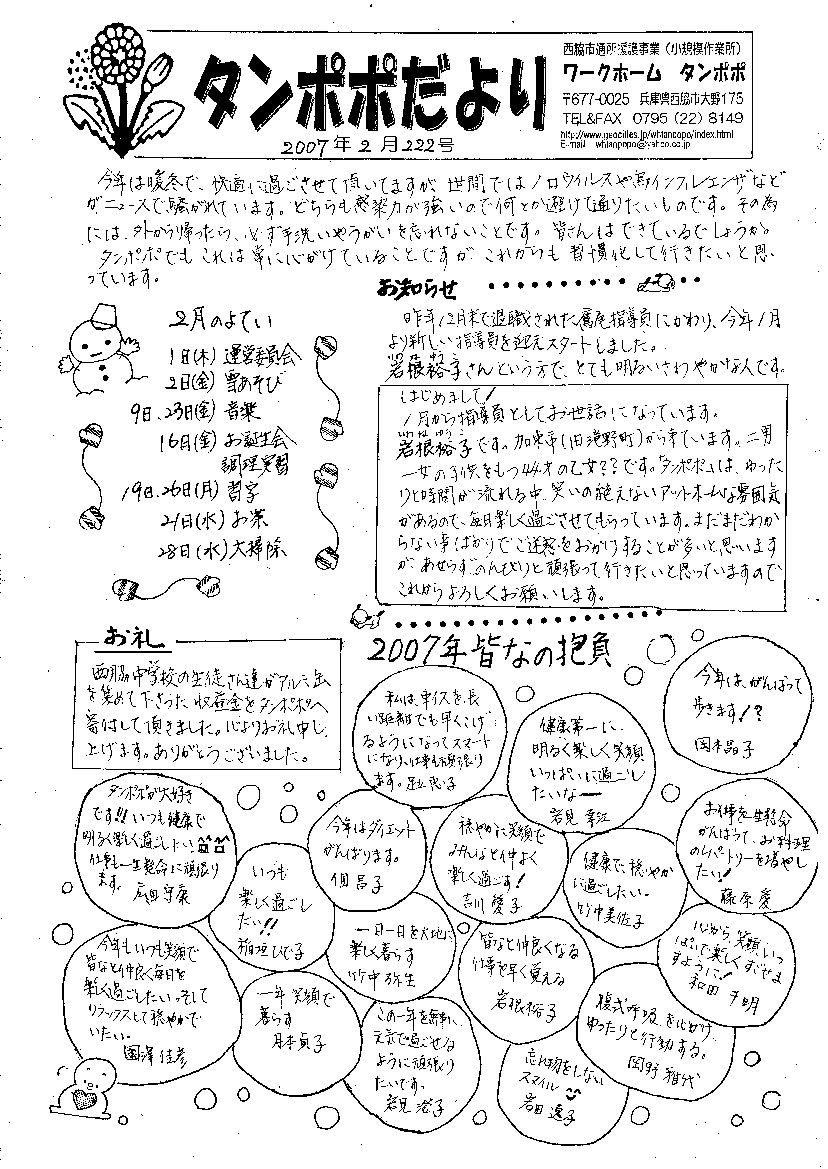 西脇市通所援護事業（小規模作業所）
ワークホーム　タンポポ
〒677-0025　兵庫県西脇市大野175
TEL&FAX　0795 (22) 8149
http://www.geocities.jp/whtanpopo/index.html
E-mail　whtanpopo@yahoo.co.jp
タンポポだより
2007年2月222号
今年は暖冬で、快適に過ごさせて頂いてますが、世間ではノロウイルスや鳥インフルエンザなど
がニュースで騒がれています。どちらも感染力が強いので何とか避けて通りたいものです。その為
には、外から帰ったら、必ず手洗いやうがいを忘れないことです。皆さんはできているでしょうか。
タンポポでもこれは常に心がけていることですが、これからも習慣化して行きたいと思
っています。
2月のよてい
1日(木) 運営委員会
2日(金) 雪あそび
9日、23日(金) 音楽
16日(金) お誕生会
調理実習
19日、26日(月) 習字
21日(水) お茶
28日(水) 大掃除
お知らせ
昨年12月末で退職された 指導員にかわり、今年1月
より新しい指導員を迎えスタートしました。
岩根裕子さんという方で、とても明るいさわやかな人です。
はじめまして!
1月から指導員としてお世話になっています。
岩根裕子です。加東市(旧滝野町)から来ています。二男
一女の子供をもつ44才の乙女??です。「タンポポ」は、ゆった
りと時間が流れる中、笑いの絶えないアットホームな雰囲気
があるので、毎日楽しく過ごさせてもらっています。まだまだわか
らない事ばかりでご迷惑をおかけすることが多いと思います
が、あせらず、のんびりと頑張って行きたいと思っていますので
これからよろしくお願いします。
お礼
西脇中学校の生徒さん達がアルミ缶
を集めて下さった収益金をタンポポへ
寄付して頂きました。心よりお礼申し
上げます。ありがとうございました。
2007年皆なの抱負
今年は、がんばって
歩きます!?
岡本晶子
私は、車イスを長
い距離でも早くこげ
るようになってスマート
になり、仕事も頑張り
ます。足立 子
健康第一に、
明るく楽しく笑顔
いっぱいに過ごし
たいなー
岩見 幸江
タンポポが大好き
です!!いつも健康で
明るく楽しく過ごしたい。
仕事も一生懸命に頑張り
ます。広田 守康
今年はダイエット
がんばります。
畑 昌子
穏やかに笑顔で
みんなと仲よく
楽しく過ごす!
吉川 愛子
お仕事を一生懸命
がんばって、お料理
のレパートリーを増やし
たい!
藤原 愛
健康で、穏やか
に過ごしたい。
竹中美佐子
いつも
楽しく過ごし
たい!!
稲垣 ひで子
一日一日を大切に
楽しく暮らす
竹中 弥生
皆なと仲良くなる
仕事を早く覚える
岩根裕子
心から笑顔いっ
ぱいで楽しくすごせま
すように!
和田 明
今年もいつも笑顔で
皆なと仲良く毎日を
楽しく過ごしたい。そして
リラックスして穏やかで
いたい。
國澤 佳彦
一年 笑顔で
暮らす
月本 貞子
この一年を無事に
元気で過ごせる
ように頑張り
たいです。
岩見 澄子
腹式呼吸を心がけ、
ゆったりと行動する。
岡野 雅代
忘れ物をしない
スマイル
岩田 逸子